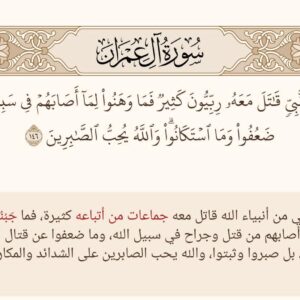 سُورَةُ آلِ عِمْرَان
قَٰتَلَ مَعَهُۥ رِبِّيُّونَ كَثِيرٌ فَمَا وَهَنُوا۟ لِمَآ أَصَابَهُمْ فِى سَبِ
ضَعُفُوا۟ وَمَا ٱسْتَكَانُوا۟ ۗ وَٱللَّهُ يُحِبُّ ٱلصَّٰبِرِينَ ١٤٦
ي من أنبياء الله قاتل معه جماعات من أتباعه كثيرة، فما جَبَنُ
أصابهم من قتل وجراح في سبيل الله، وما ضعفوا عن قتال
، بل صبروا وثبتوا، والله يحب الصابرين على الشدائد والمكار